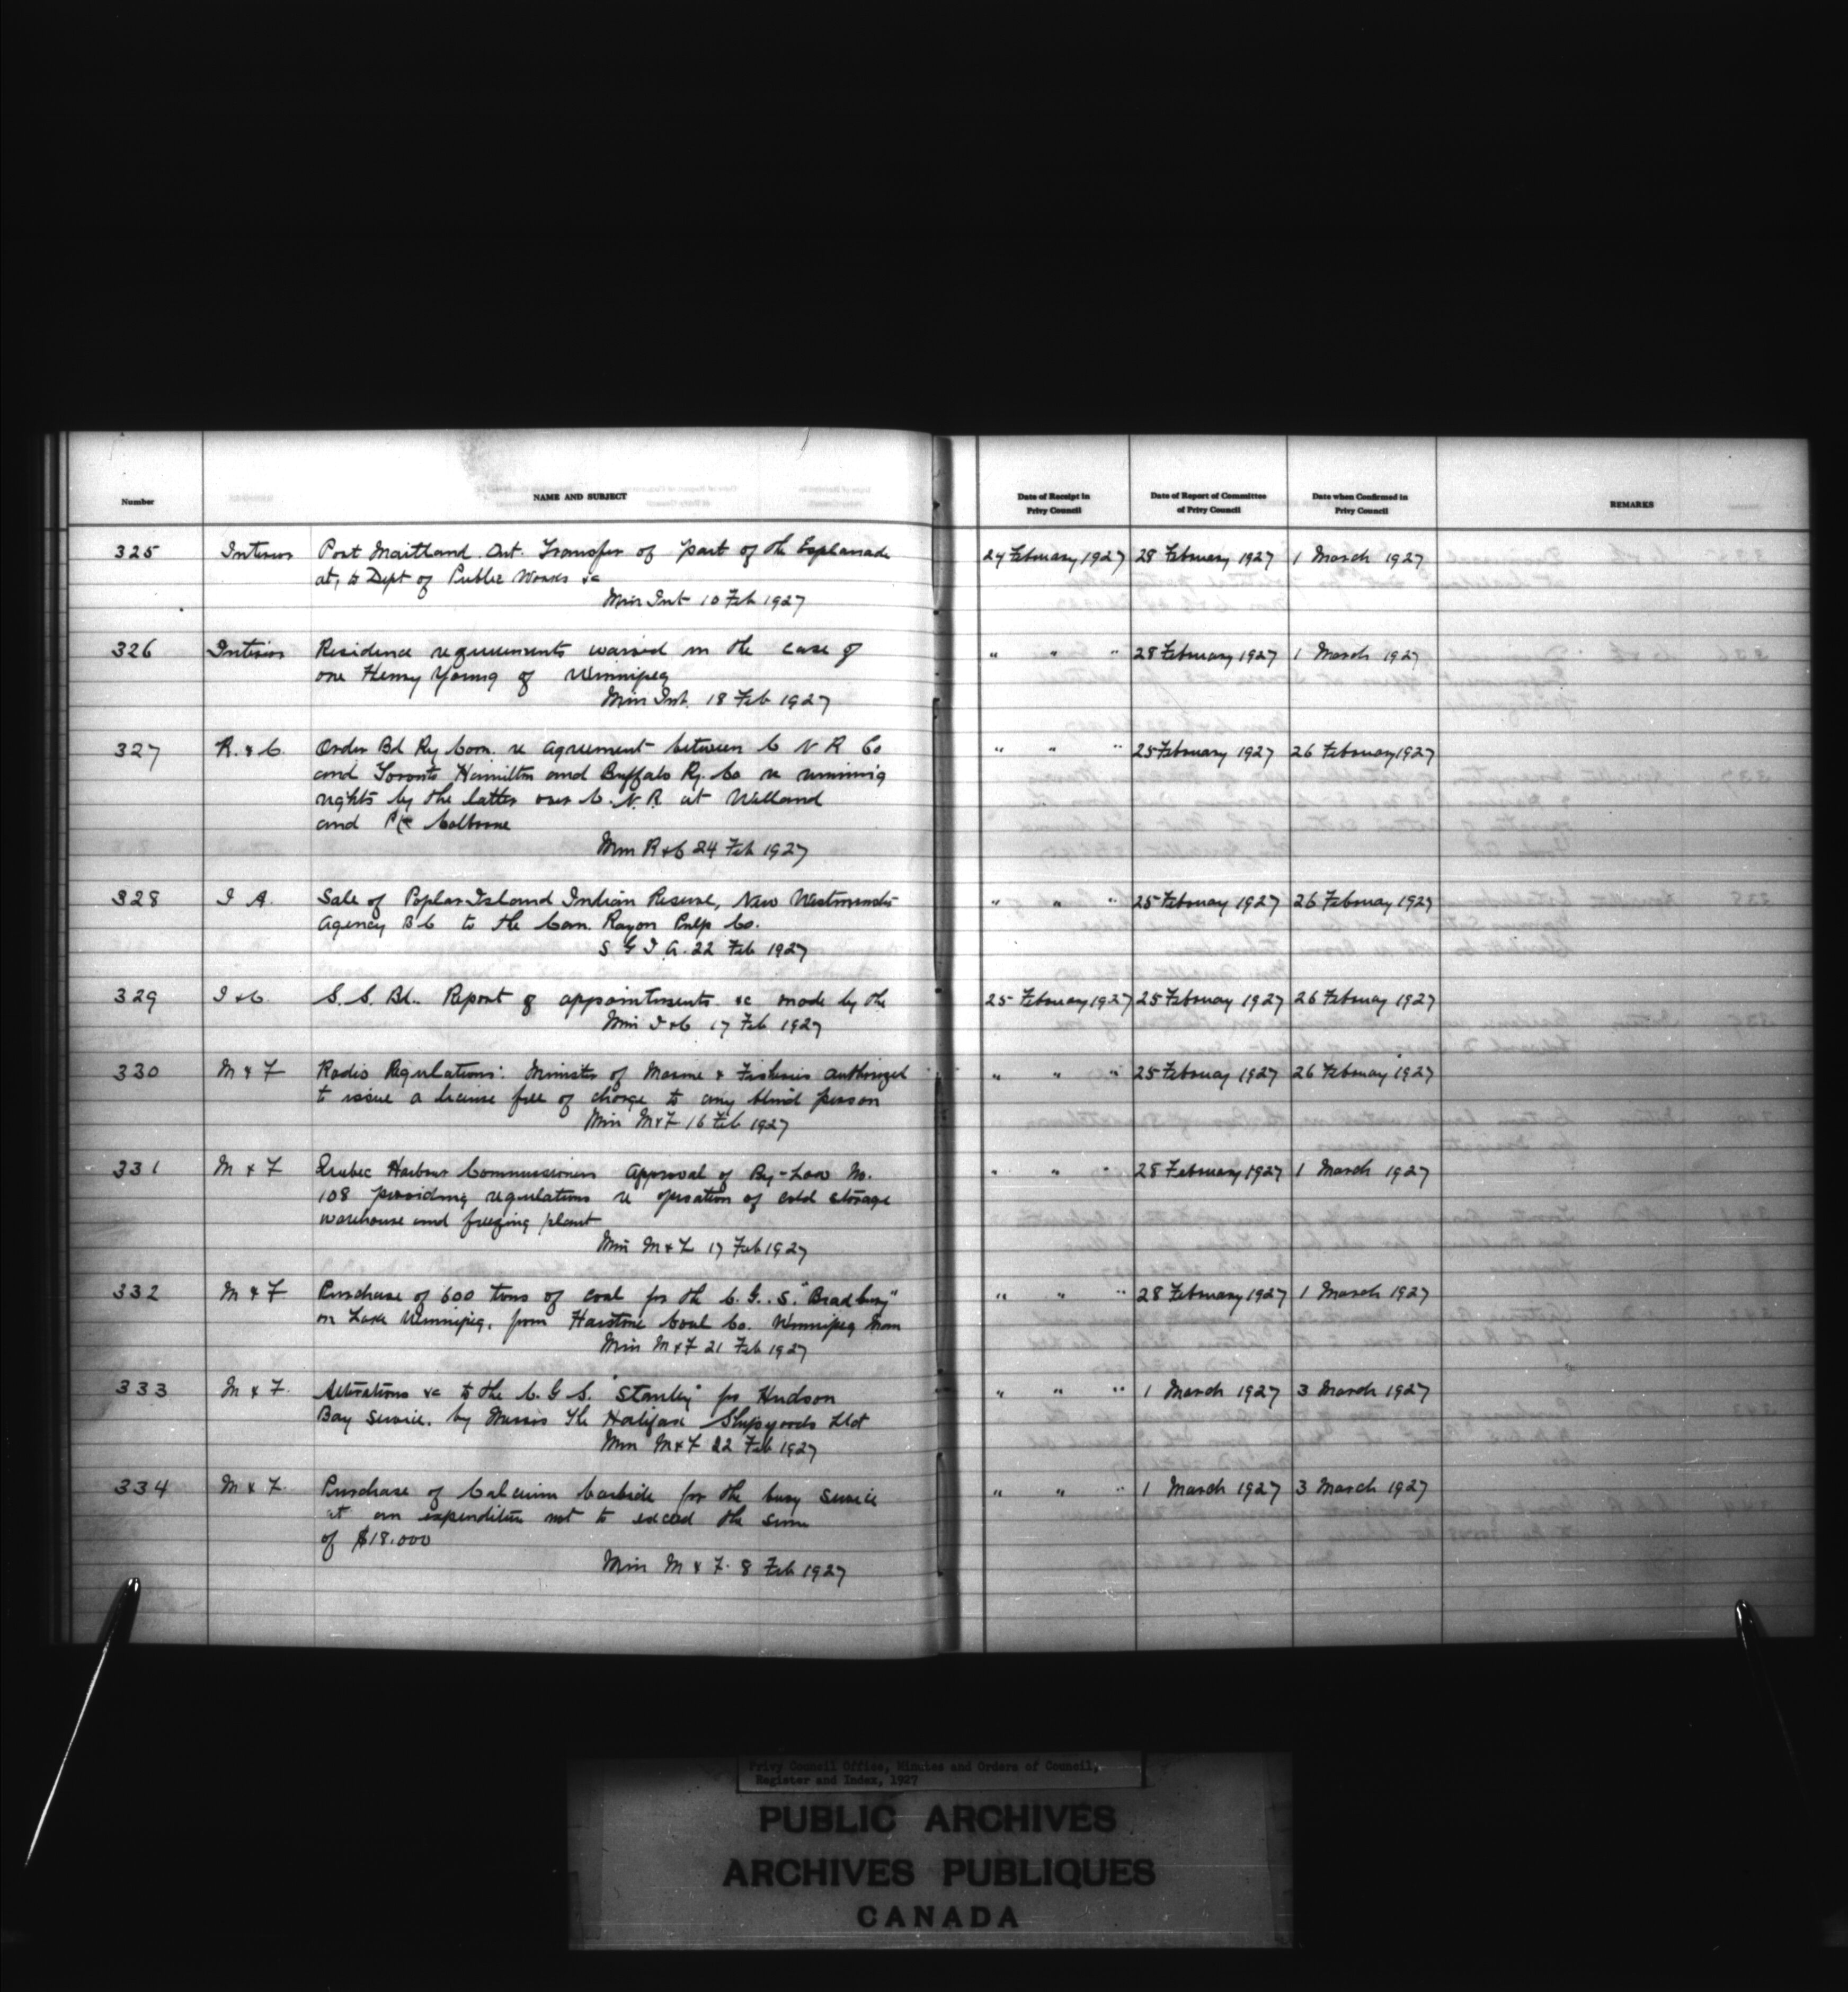 Number
NAME AND SUBJECT
Date of Receipt in
Privy Council
Date of Report of Committee
of Privy Council
Date when Confirmed in
Privy Council
REMARKS
325 Interior Port Maitland Ont. Transfer of part of the Esplanade 24 February 1927 28 February 1927 1 March 1927
at, to Dept of Public Works &c
Min Int 10 Feb 1927
326 Interior Residence requirements waived in the case of " " " 28 February 1927 1 March 1927
one Henry Young of Winnipeg
Min Int. 18 Feb 1927
327 R. & C. Order Bd Ry Com. re agreement between C N R Co " " " 25 February 1927 26 February 1927
and Toronto Hamilton and Buffalo Ry. Co re running
rights by the latter over C. N. R. at Welland
and Pt Colborne
Min R & C 24 Feb 1927
328 I A. Sale of Poplar Island Indian Reserve, New Westminster " " " 25 February 1927 26 February 1927
Agency B C to the Can. Rayon Pulp Co.
S G I A. 22 Feb 1927
329 I & C. S. S. Bd. Report of appointments &c made by the 25 February 1927 25 February 1927 26 February 1927
Min I & C 17 Feb 1927
330 M & F Radio Regulations: Minister of Marine & Fisheries authorized " " " 25 February 1927 26 February 1927
to issue a license free of charge to any blind person
Min M & F 16 Feb 1927
331 M & F Quebec Harbour Commissioners Approval of By-Law No. " " " 28 February 1927 1 March 1927
108 providing regulations re operation of cold storage
warehouse and freezing plant
Min M & F 17 Feb 1927
332 M & F Purchase of 600 tons of coal for the C. G. S. "Bradbury" " " " 28 February 1927 1 March 1927
on Lake Winnipeg, from Coal Co. Winnipeg Man
Min M & F 21 Feb 1927
333 M & F. Alterations &c to the C. G. S. "Stanley" for Hudson " " " 1 March 1927 3 March 1927
Bay Service. by Messrs The Halifax Shipyards Ltd
Min M & F 22 Feb 1927
334 M & F. Purchase of Calcium Carbide for the buoy service " " " 1 March 1927 3 March 1927
at an expenditure not to exceed the sum
of $18.000
Min M & F. 8 Feb 1927
Privy Council Office, Minutes and Orders of Council,
Register and Index, 1927
PUBLIC ARCHIVES
ARCHIVES PUBLIQUES
CANADA